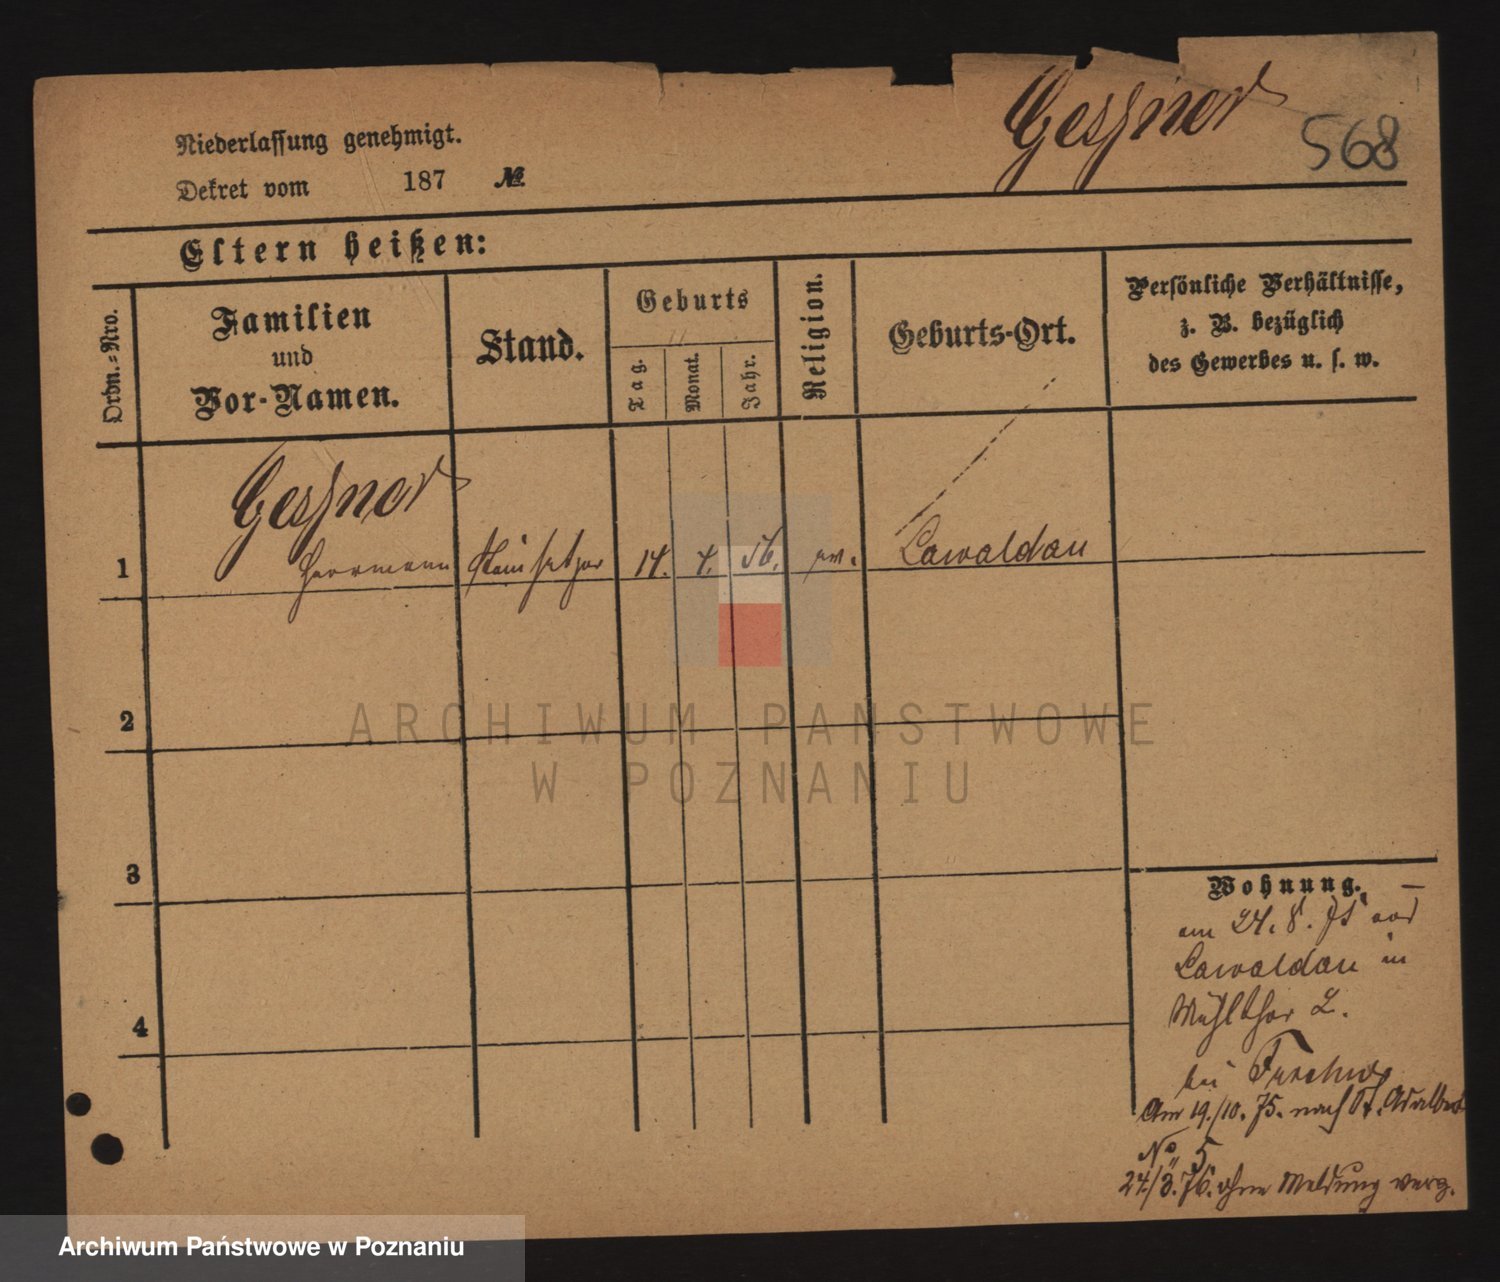 Gessner 568
Niederlassung genehmigt.
Dekret vom 187 №
Eltern heißen:
Ordn.-Nro.
Familien
und
Vor-Namen.
Stand.
Geburts
Tag.
Monat.
Jahr.
Religion.
Geburts-Ort.
Persönliche Verhältnisse,
z. B. bezüglich
des Gewerbes u. s. w.
Gessner
1 Herrmann Steinsetzer 14. 4. 56. ev. Lawaldau
2
3
4
Wohnung.
am 24. 8. 75 aus
Lawaldau in
Mühlthor 2.
bei
Am 19./10. 75. nach St. Adalbert
No 5
24./3. 76. ohne Meldung verz.
ARCHIWUM PAŃSTWOWE
W POZNANIU
Archiwum Państwowe w Poznaniu